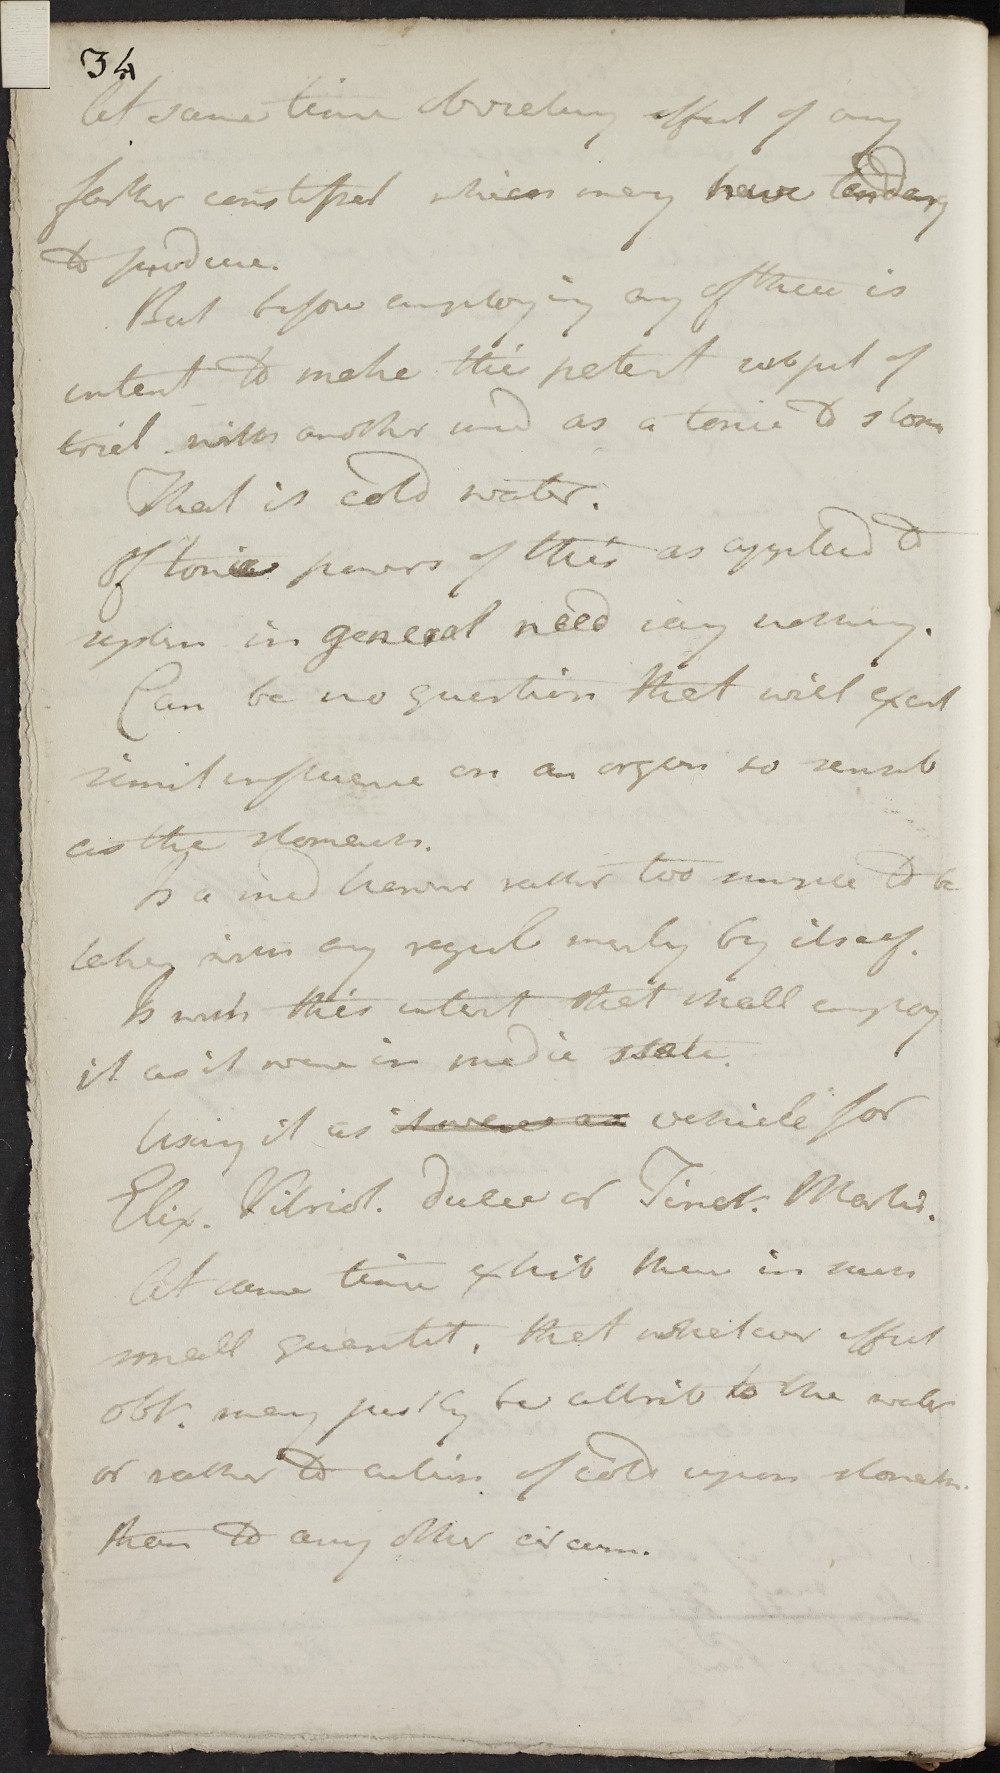 34
At same time obviating effect of any
farther constipat which may have tendency
to produce.
But before employing any of these is
intent to make this patient subject of
trial with another med as a tonic to stom
That is cold water.
Of tonic powers of this as applied to
system in general need say nothing.
Can be no question that will exert
simil influence on an organ so sensib
as the stomach.
Is a med however rather too simple to be
taken with any regul merely by itself.
Is with this intent that shall employ
it as it were in medic state.
Using it as it were as vehicle for
Elix. Vitriol. Dulce or Tinct. Martis.
At same time exhib them in such
small quantit, that whatever effect
obt. may justly be attrib to the water
or rather to action of cold upon stomach.
than to any other circum.